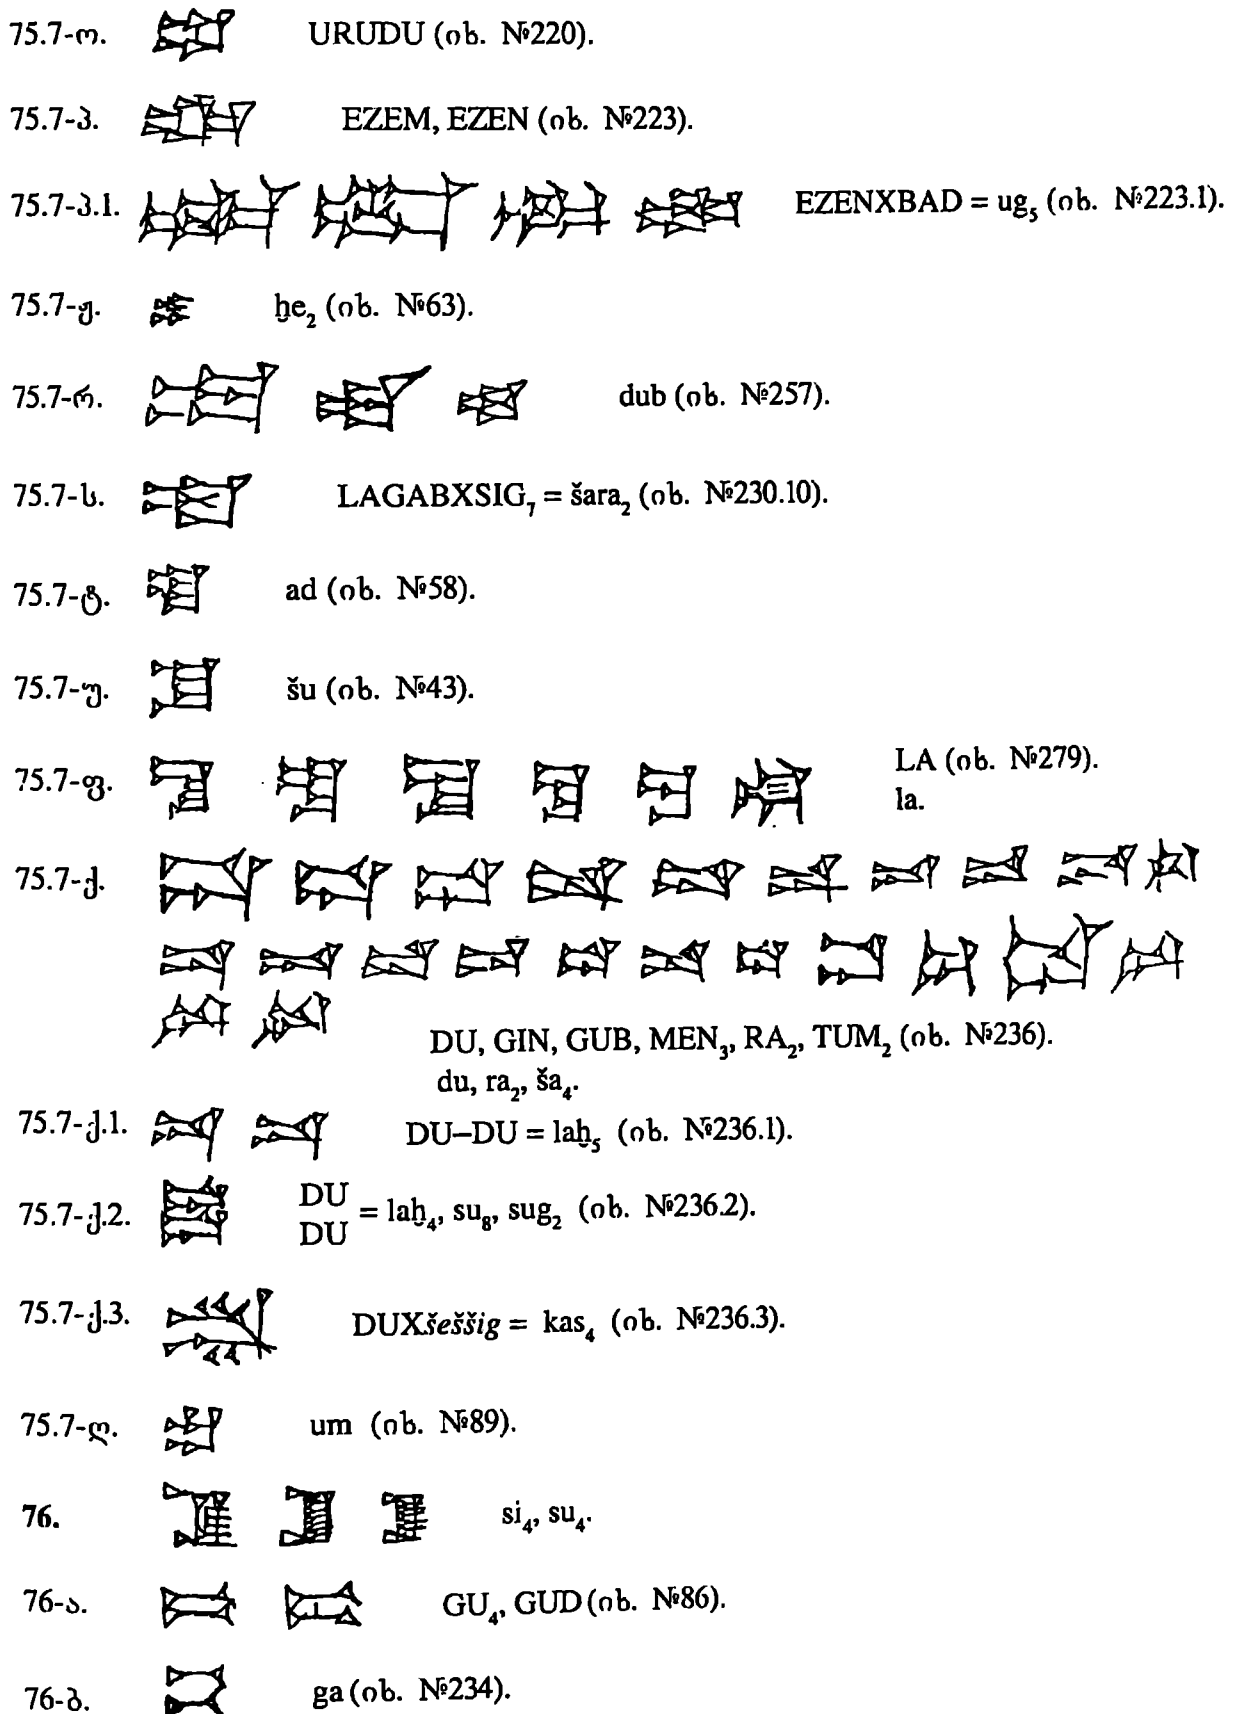 75.7-ო. URUDU (იხ. №220).
75.7-პ. EZEM, EZEN (იხ. №223).
75.7-პ.1. EZENXBAD = ug₅ (იხ. №223.1).
75.7-ჟ. ḫe₂ (იხ. №63).
75.7-რ. dub (იხ. №257).
75.7-ს. LAGABXSIG₇ = šara₂ (იხ. №230.10).
75.7-ტ. ad (იხ. №58).
75.7-უ. šu (იხ. №43).
75.7-ფ. LA (იხ. №279).
la.
75.7-ქ.
DU, GIN, GUB, MEN₃, RA₂, TUM₂ (იხ. №236).
du, ra₂, ša₄.
75.7-ქ.1. DU–DU = laḫ₅ (იხ. №236.1).
75.7-ქ.2. DU
DU = laḫ₄, su₈, sug₂ (იხ. №236.2).
75.7-ქ.3. DUXšeššig = kas₄ (იხ. №236.3).
75.7-ღ. um (იხ. №89).
76. si₄, su₄.
76-ა. GU₄, GUD (იხ. №86).
76-ბ. ga (იხ. №234).